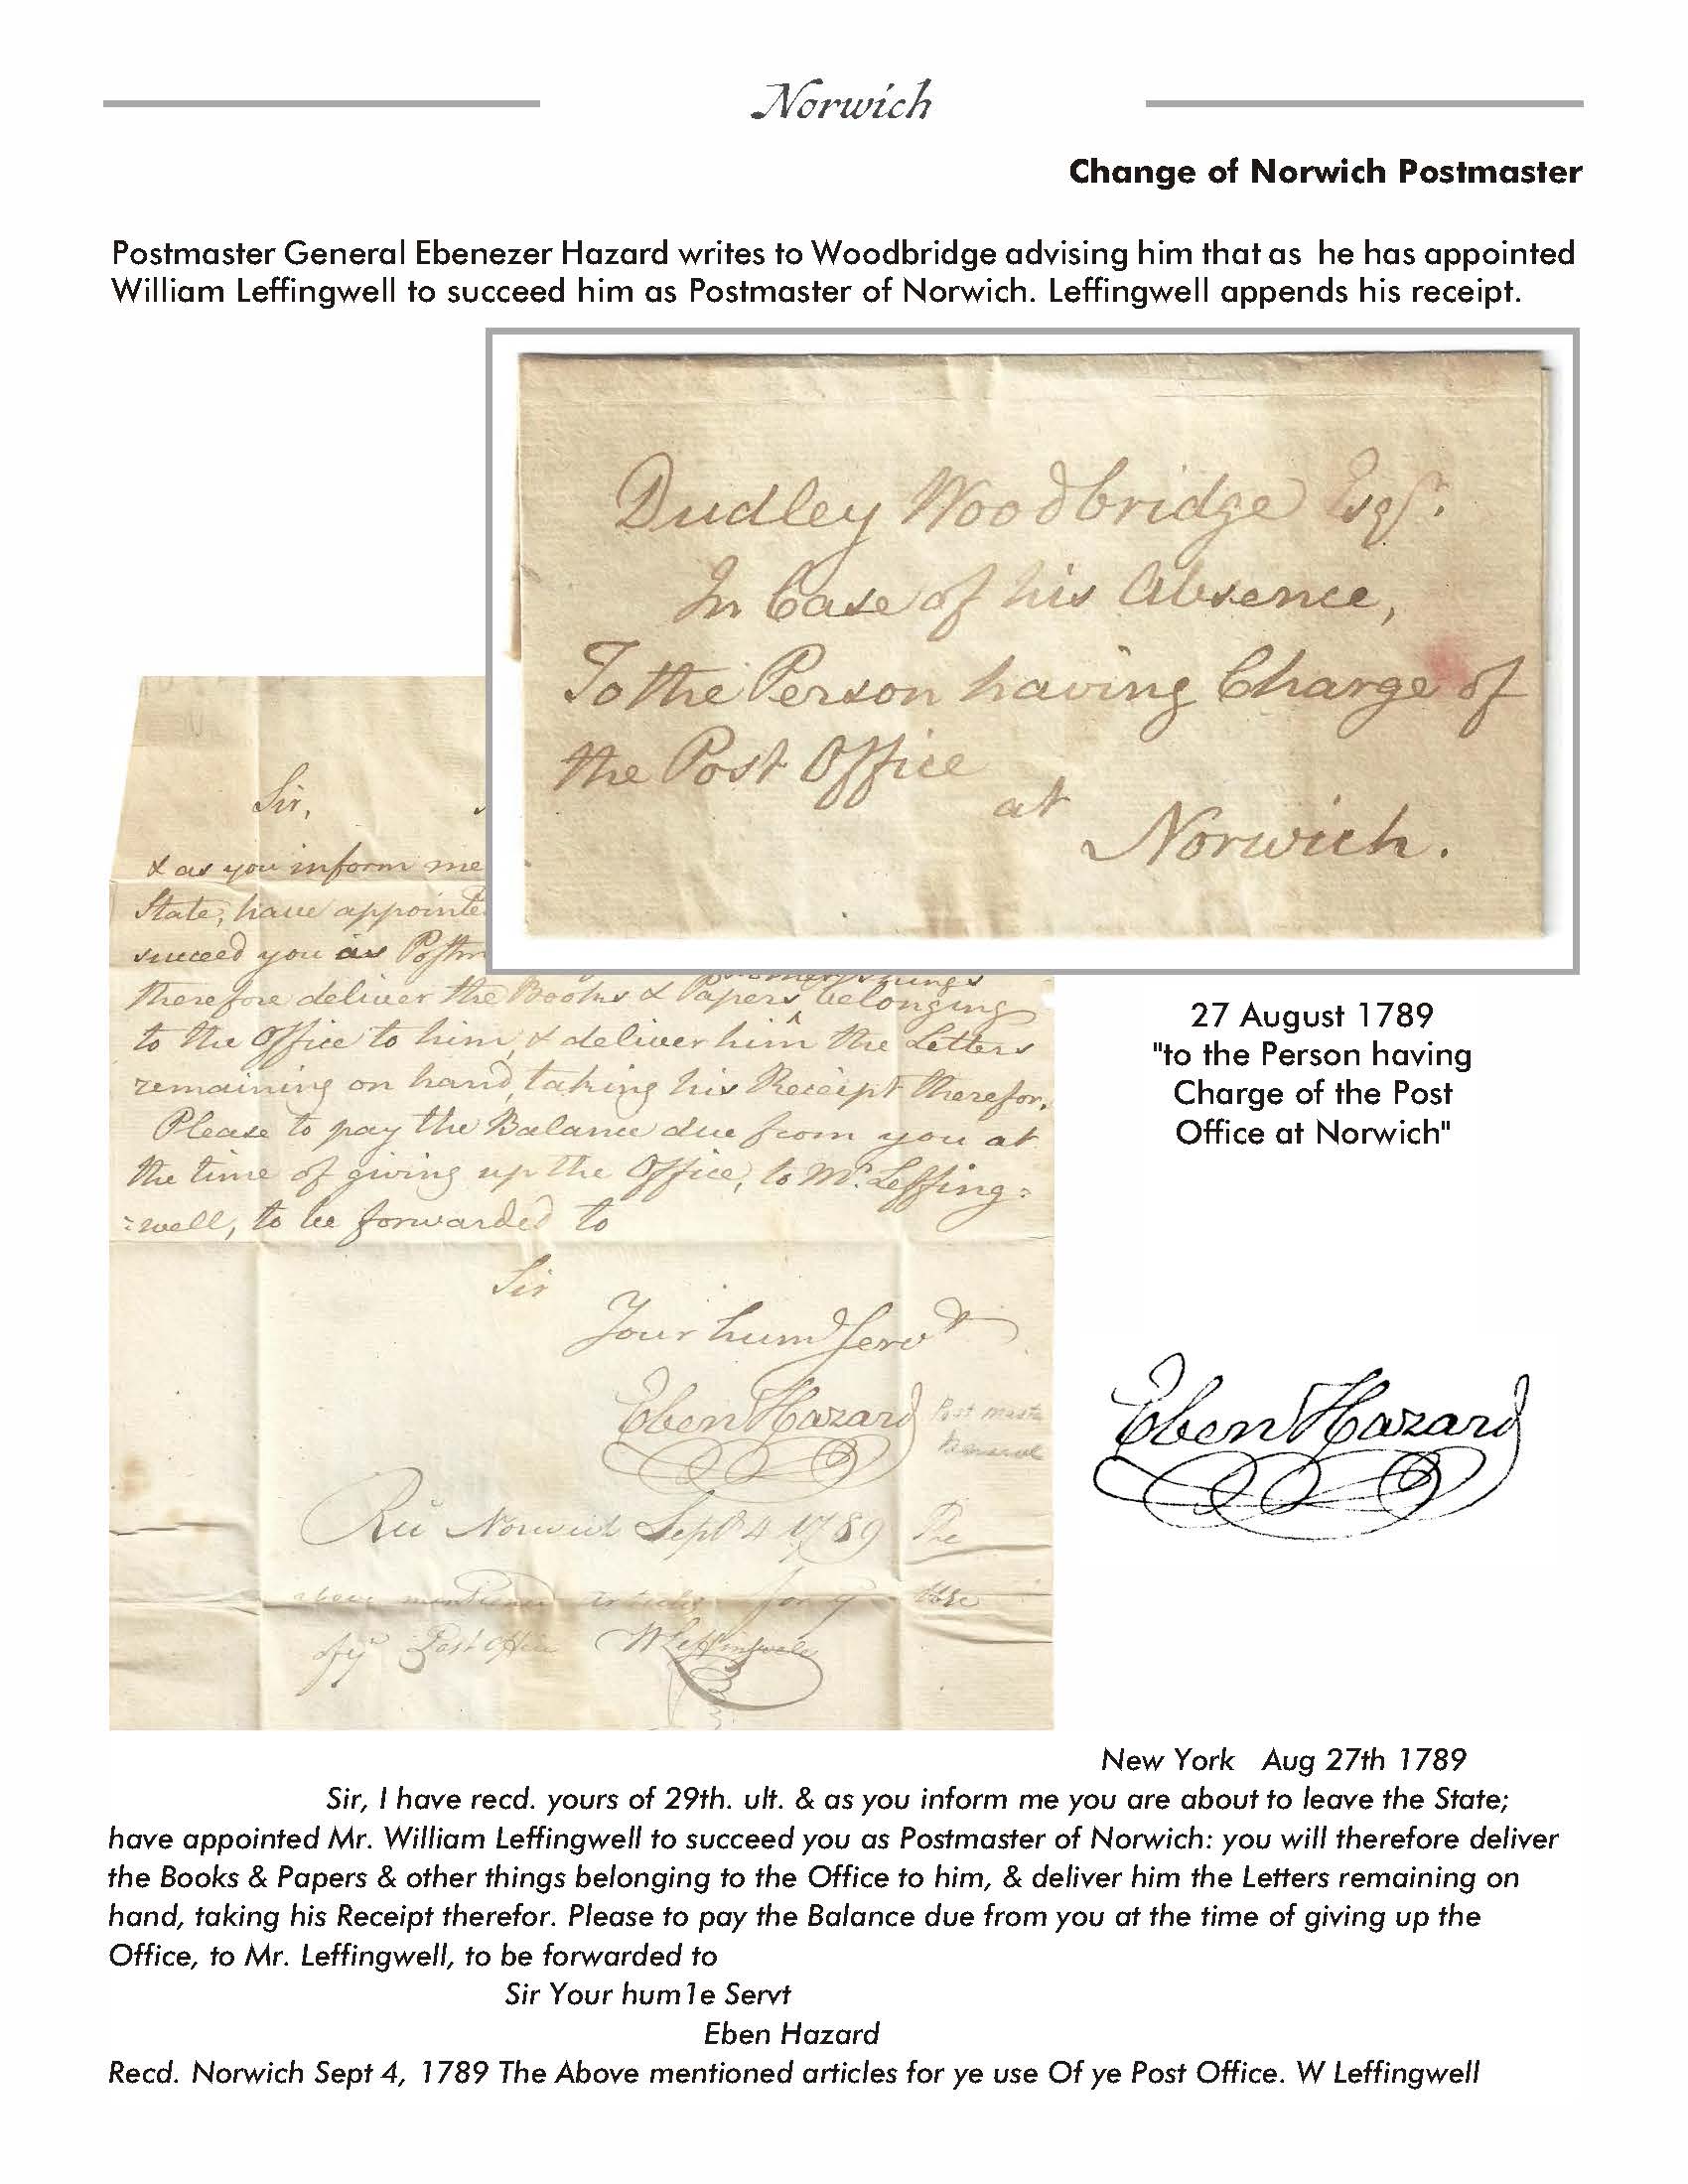 Norwich
Change of Norwich Postmaster
Postmaster General Ebenezer Hazard writes to Woodbridge advising him that as he has appointed
William Leffingwell to succeed him as Postmaster of Norwich. Leffingwell appends his receipt.
Dudley Woodbridge Esqr.
In Case of his Absence,
To the Person having Charge of
the Post Office
at
Norwich.
Sir,
& as you inform me
State; have appointe
succeed you as Postm
other things
therefore deliver the Books & Papers ^ belonging
to the Office to him, & deliver him the Letters
remaining on hand, taking his Receipt therefor.
Please to pay the Balance due from you at
the time of giving up the Office, to Mr. Leffing=
=well, to be forwarded to
Sir
Your hum Servt
Eben Hazard
Post maste
General
Rec Norwich Sept 4 1789 The
above mentioned articles for ye Use
of ye Post Office W Leffingwell
27 August 1789
"to the Person having
Charge of the Post
Office at Norwich"
Eben Hazard
New York Aug 27th 1789
Sir, I have recd. yours of 29th. ult. & as you inform me you are about to leave the State;
have appointed Mr. William Leffingwell to succeed you as Postmaster of Norwich: you will therefore deliver
the Books & Papers & other things belonging to the Office to him, & deliver him the Letters remaining on
hand, taking his Receipt therefor. Please to pay the Balance due from you at the time of giving up the
Office, to Mr. Leffingwell, to be forwarded to
Sir Your hum1e Servt
Eben Hazard
Recd. Norwich Sept 4, 1789 The Above mentioned articles for ye use Of ye Post Office. W Leffingwell